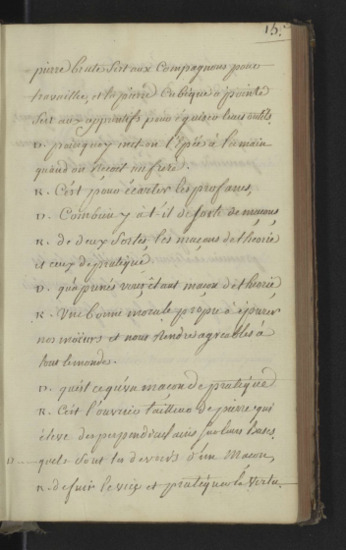 15.
pierre brute sert aux Compagnons pour
travailler, et la pierre Cubique a pointe
sert aux apprentifs pour éguiser leurs outils.
D. pourquoy met on l'Epée a la main
quand on Recoit un frere
R. C'est pour écarter les profanes,
D. Combien y at'il de sorte de maçons
R. de deux sortes, les maçons de théorie
et ceux de pratique
D. qu'apprenés vous étant maçon de théorie
R. Une bonne morale propre a épurer
nos mœurs et nous Rendre agreables a
tout le monde.
D. qu'est ce qu'un maçon de pratique
R. C'est l'ouvrier tailleur de pierre qui
éleve des perpendiculaires sur leurs bases
D. quels sont les devoirs d'un Maçon,
R. de fuir le vice et pratiquer la Vertu